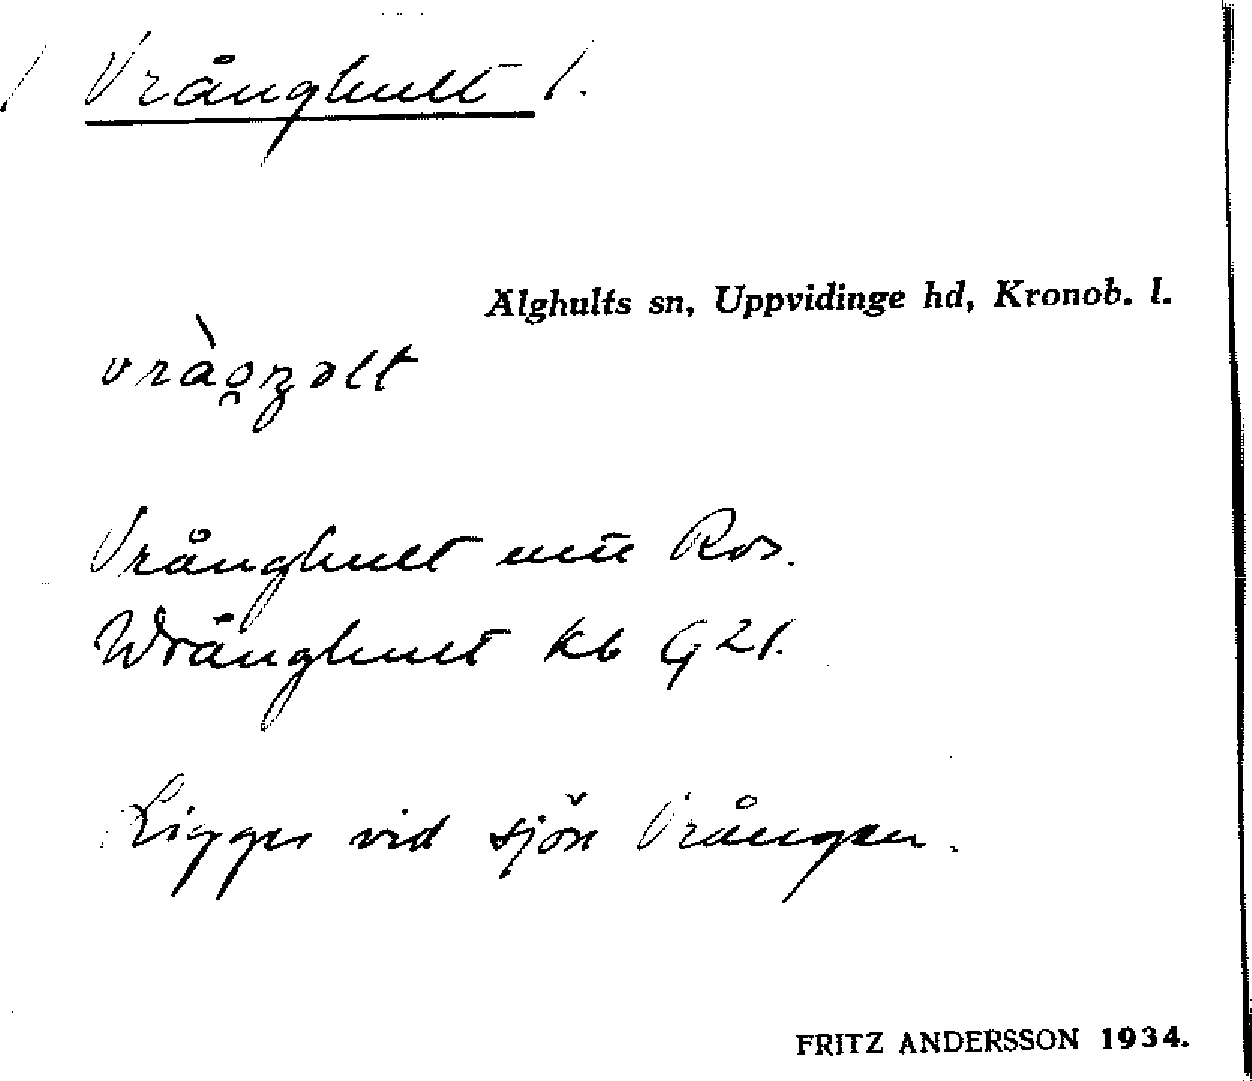 / Vrånghult /.
Älghults sn, Uppvidinge hd, Kronob. l.
Vrånghult
Wrånghult kb G 21.
Ligger vid sjön Vrången.
FRITZ ANDERSSON 1934.